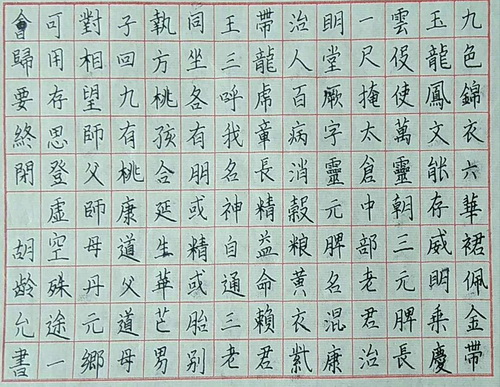 九色錦衣六華裙佩金帶
玉龍鳳文能存威明乘慶
雲役使萬靈朝三元脾長
一尺掩太倉中部老君治
明堂厥字靈元脾名混康
治人百病消穀粮黃衣紫
帶龍虎章長精益命賴君
王三呼我名神自通三老
同坐各有朋或精或胎别
執方桃孩合延生華芒男
子回九有桃康道父道母
對相望師父師母丹元鄉
可用存思登虛空殊途一
會歸要終閉
胡龄允書